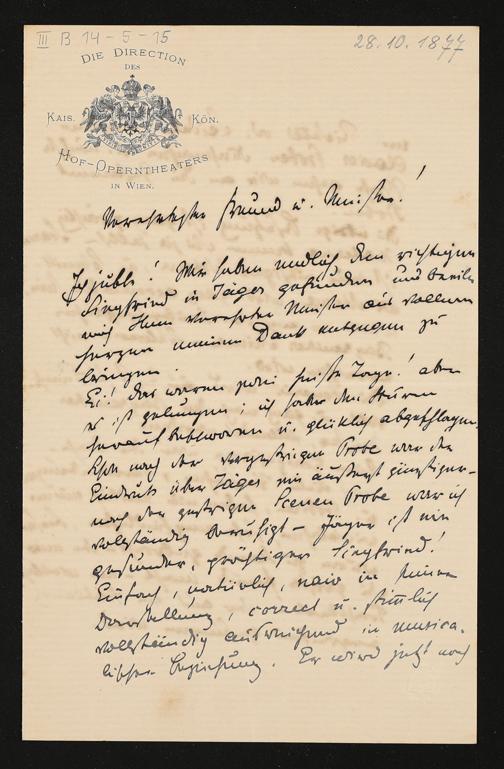 III B 14-5-15
28.10.1877
DIE DIRECTION
DES
KAIS. KÖN.
HOF-OPERNTHEATERS
IN WIEN.
Verehrtester Freund u. Meister!
Ich juble! Wir haben endlich den richtigen
Siegfried in Jäger gefunden und beeile
mich Ihnen verehrter Meister aus vollem
Herzen meinen Dank entgegen zu
bringen.
Ei! das waren zwei heiße Tage! aber
es ist gelungen; ich habe den Sturm
herauf beschworen u. glücklich abgeschlagen.
Schon nach der vorgestrigen Probe war der
Eindruck über Jäger ein äußerst günstiger –
nach der gestrigen Scenen Probe war ich
vollständig beruhigt – Jäger ist ein
gesunder, prächtiger Siegfried!
Einfach, natürlich, naiv in seiner
Darstellung, correct u. stimmlich
vollständig ausreichend in musica-
lischer Beziehung. Er wird jetzt noch